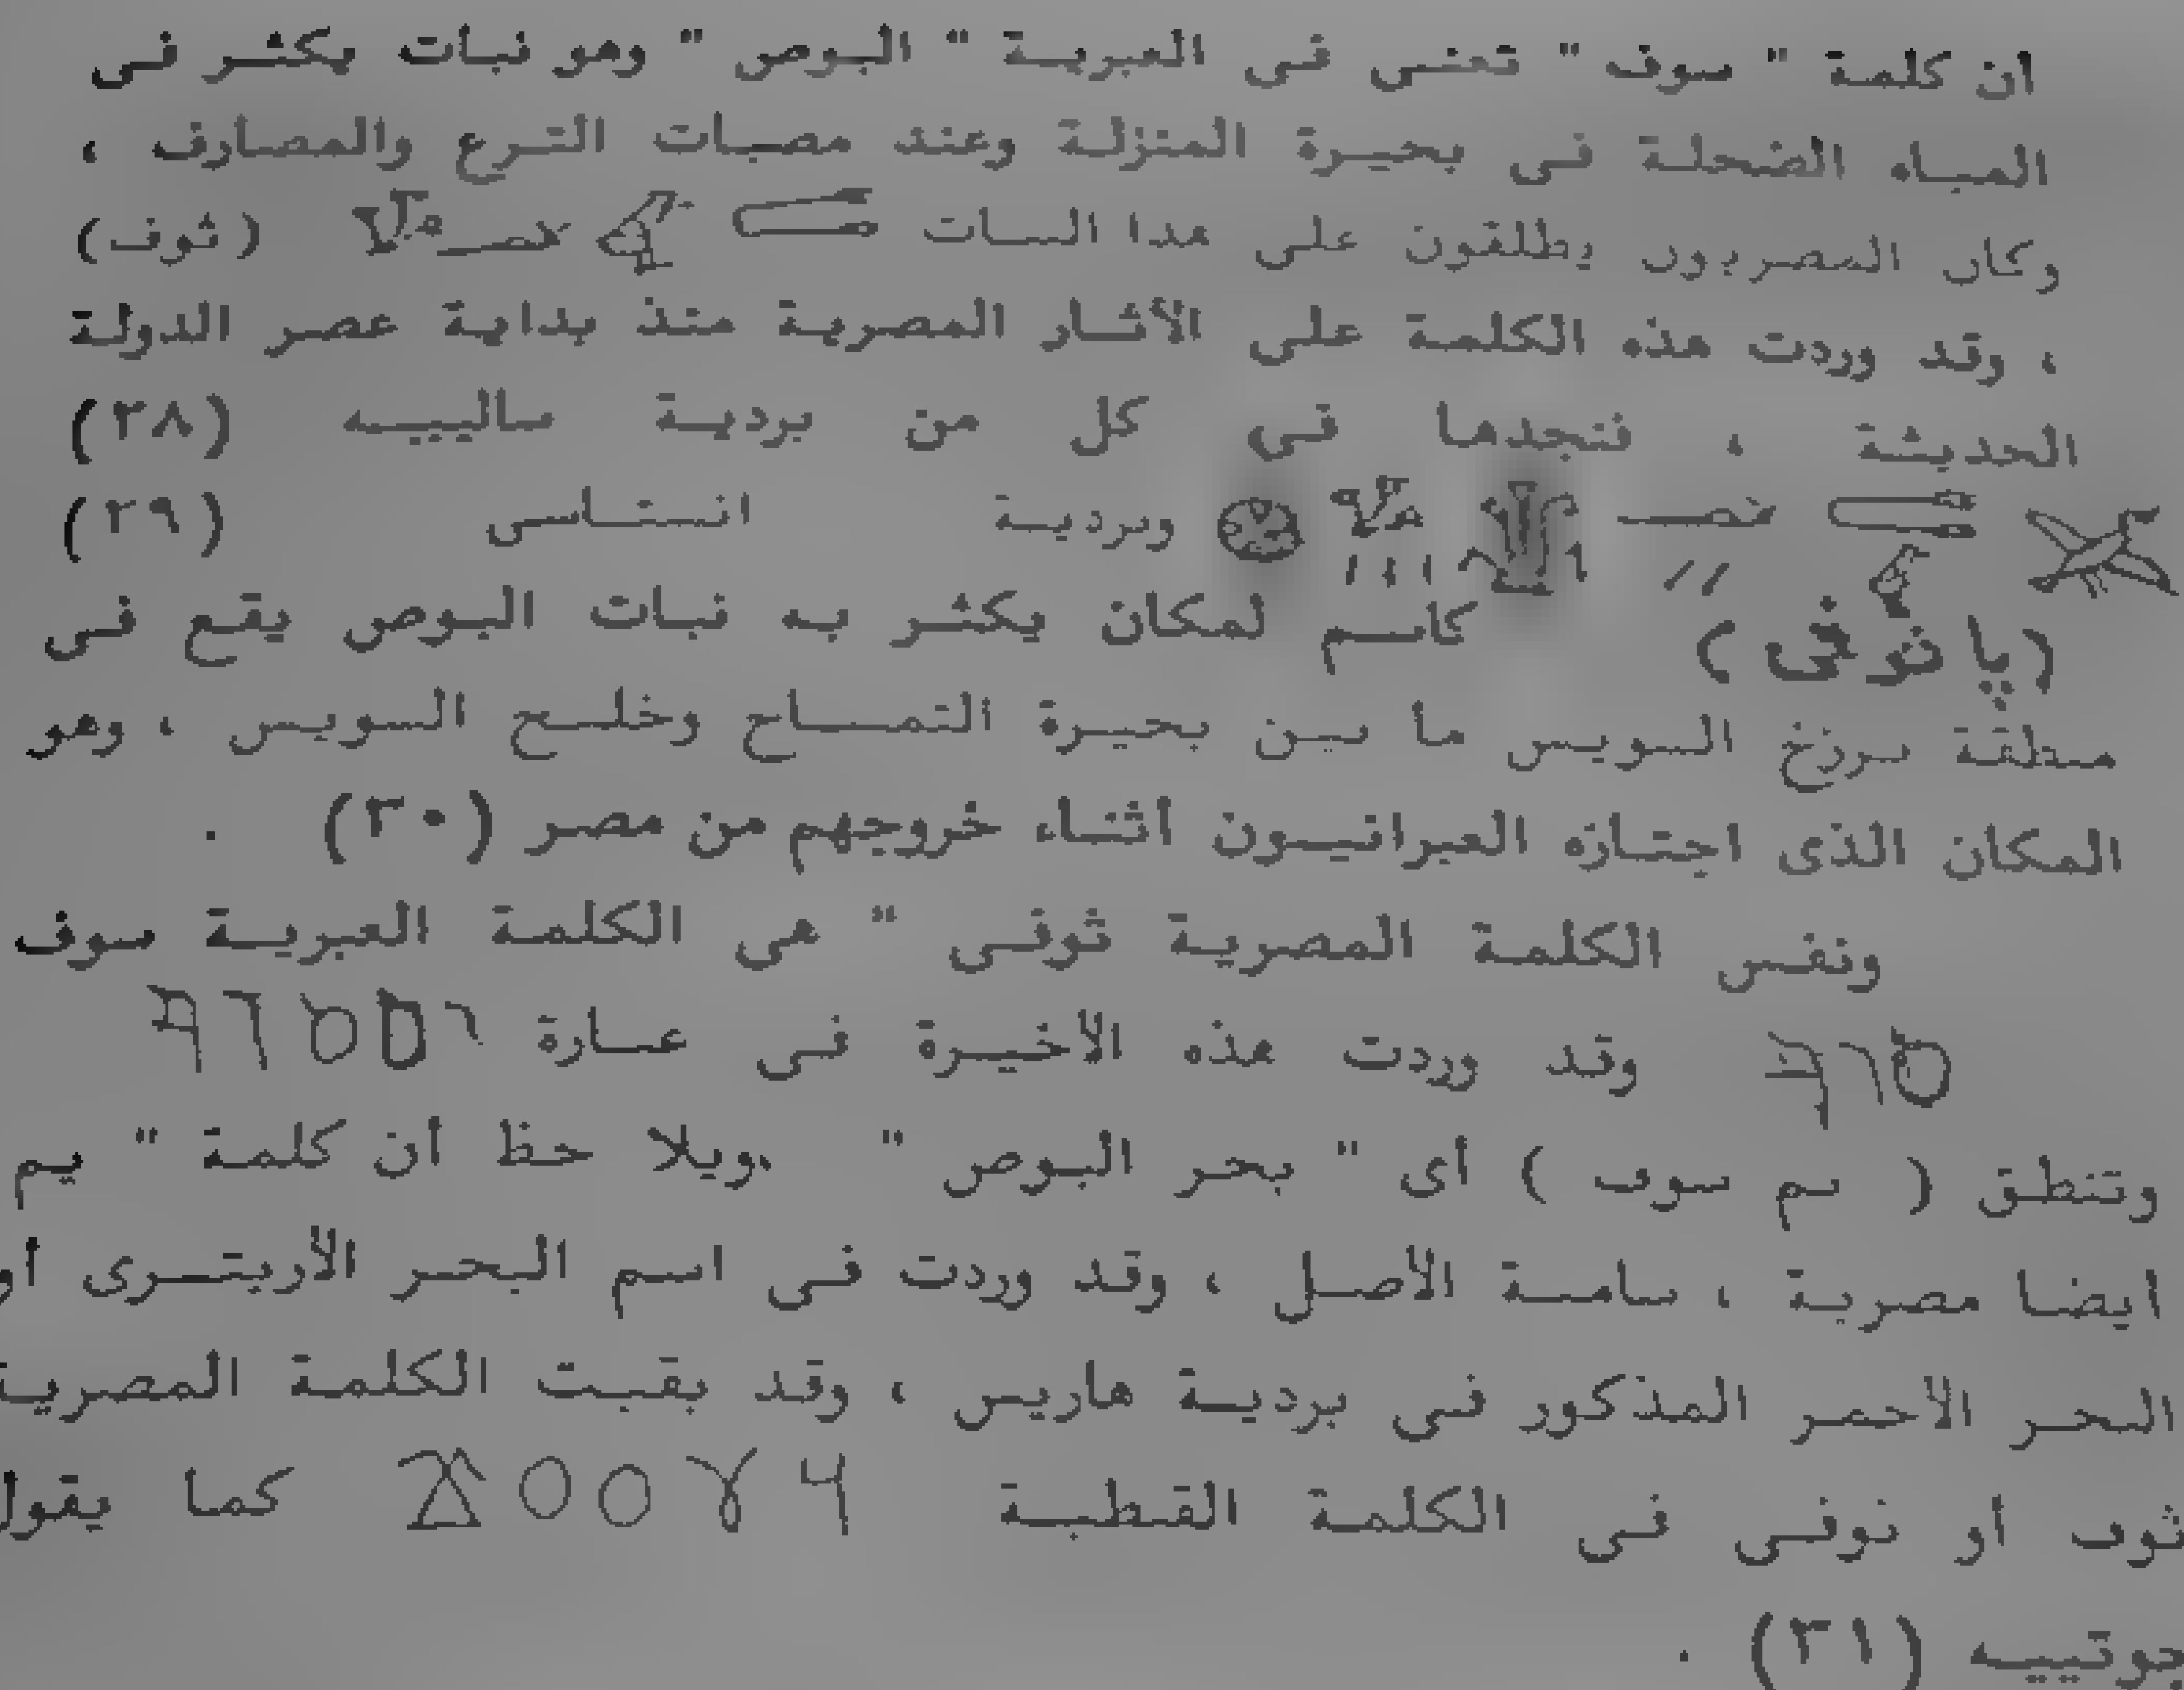 ان كلمة " سوف " تعنى فى العبرية " البوص " وهو نبات يكثر فى
المياه الضحلة فى بحيرة المنزلة وعند مصبات الترع والمصارف ،
وكان المصريون يطلقون على هذا النبات (ثوف)
، وقد وردت هذه الكلمة على الآثار المصرية منذ بداية عصر الدولة
الحديثة ، فنجدها فى كل من بردية سالييه (٢٨)
وبردية انستاسى (٢٩)
(پا ثوفى) كاسم لمكان يكثر به نبات البوص يقع فى
منطقة برزخ السويس ما بين بحيرة التمساح وخليج السويس ، وهو
المكان الذى اجتازه العبرانيون أثناء خروجهم من مصر (٣٠) .
ونفس الكلمة المصرية ثوفى " هى الكلمة العبرية سوف
وقد وردت هذه الأخيرة فى عبارة
وتنطق ( يم سوف ) أى " بحر البوص " ،ويلا حظ أن كلمة " يم
ايضا مصرية ، سامية الأصل ، وقد وردت فى اسم البحر الأريترى أو
البحر الأحمر المذكور فى بردية هاريس ، وقد بقيت الكلمة المصرية
ثوف أو ثوفى فى الكلمة القبطية كما يقول
جوتييه (٣١) .